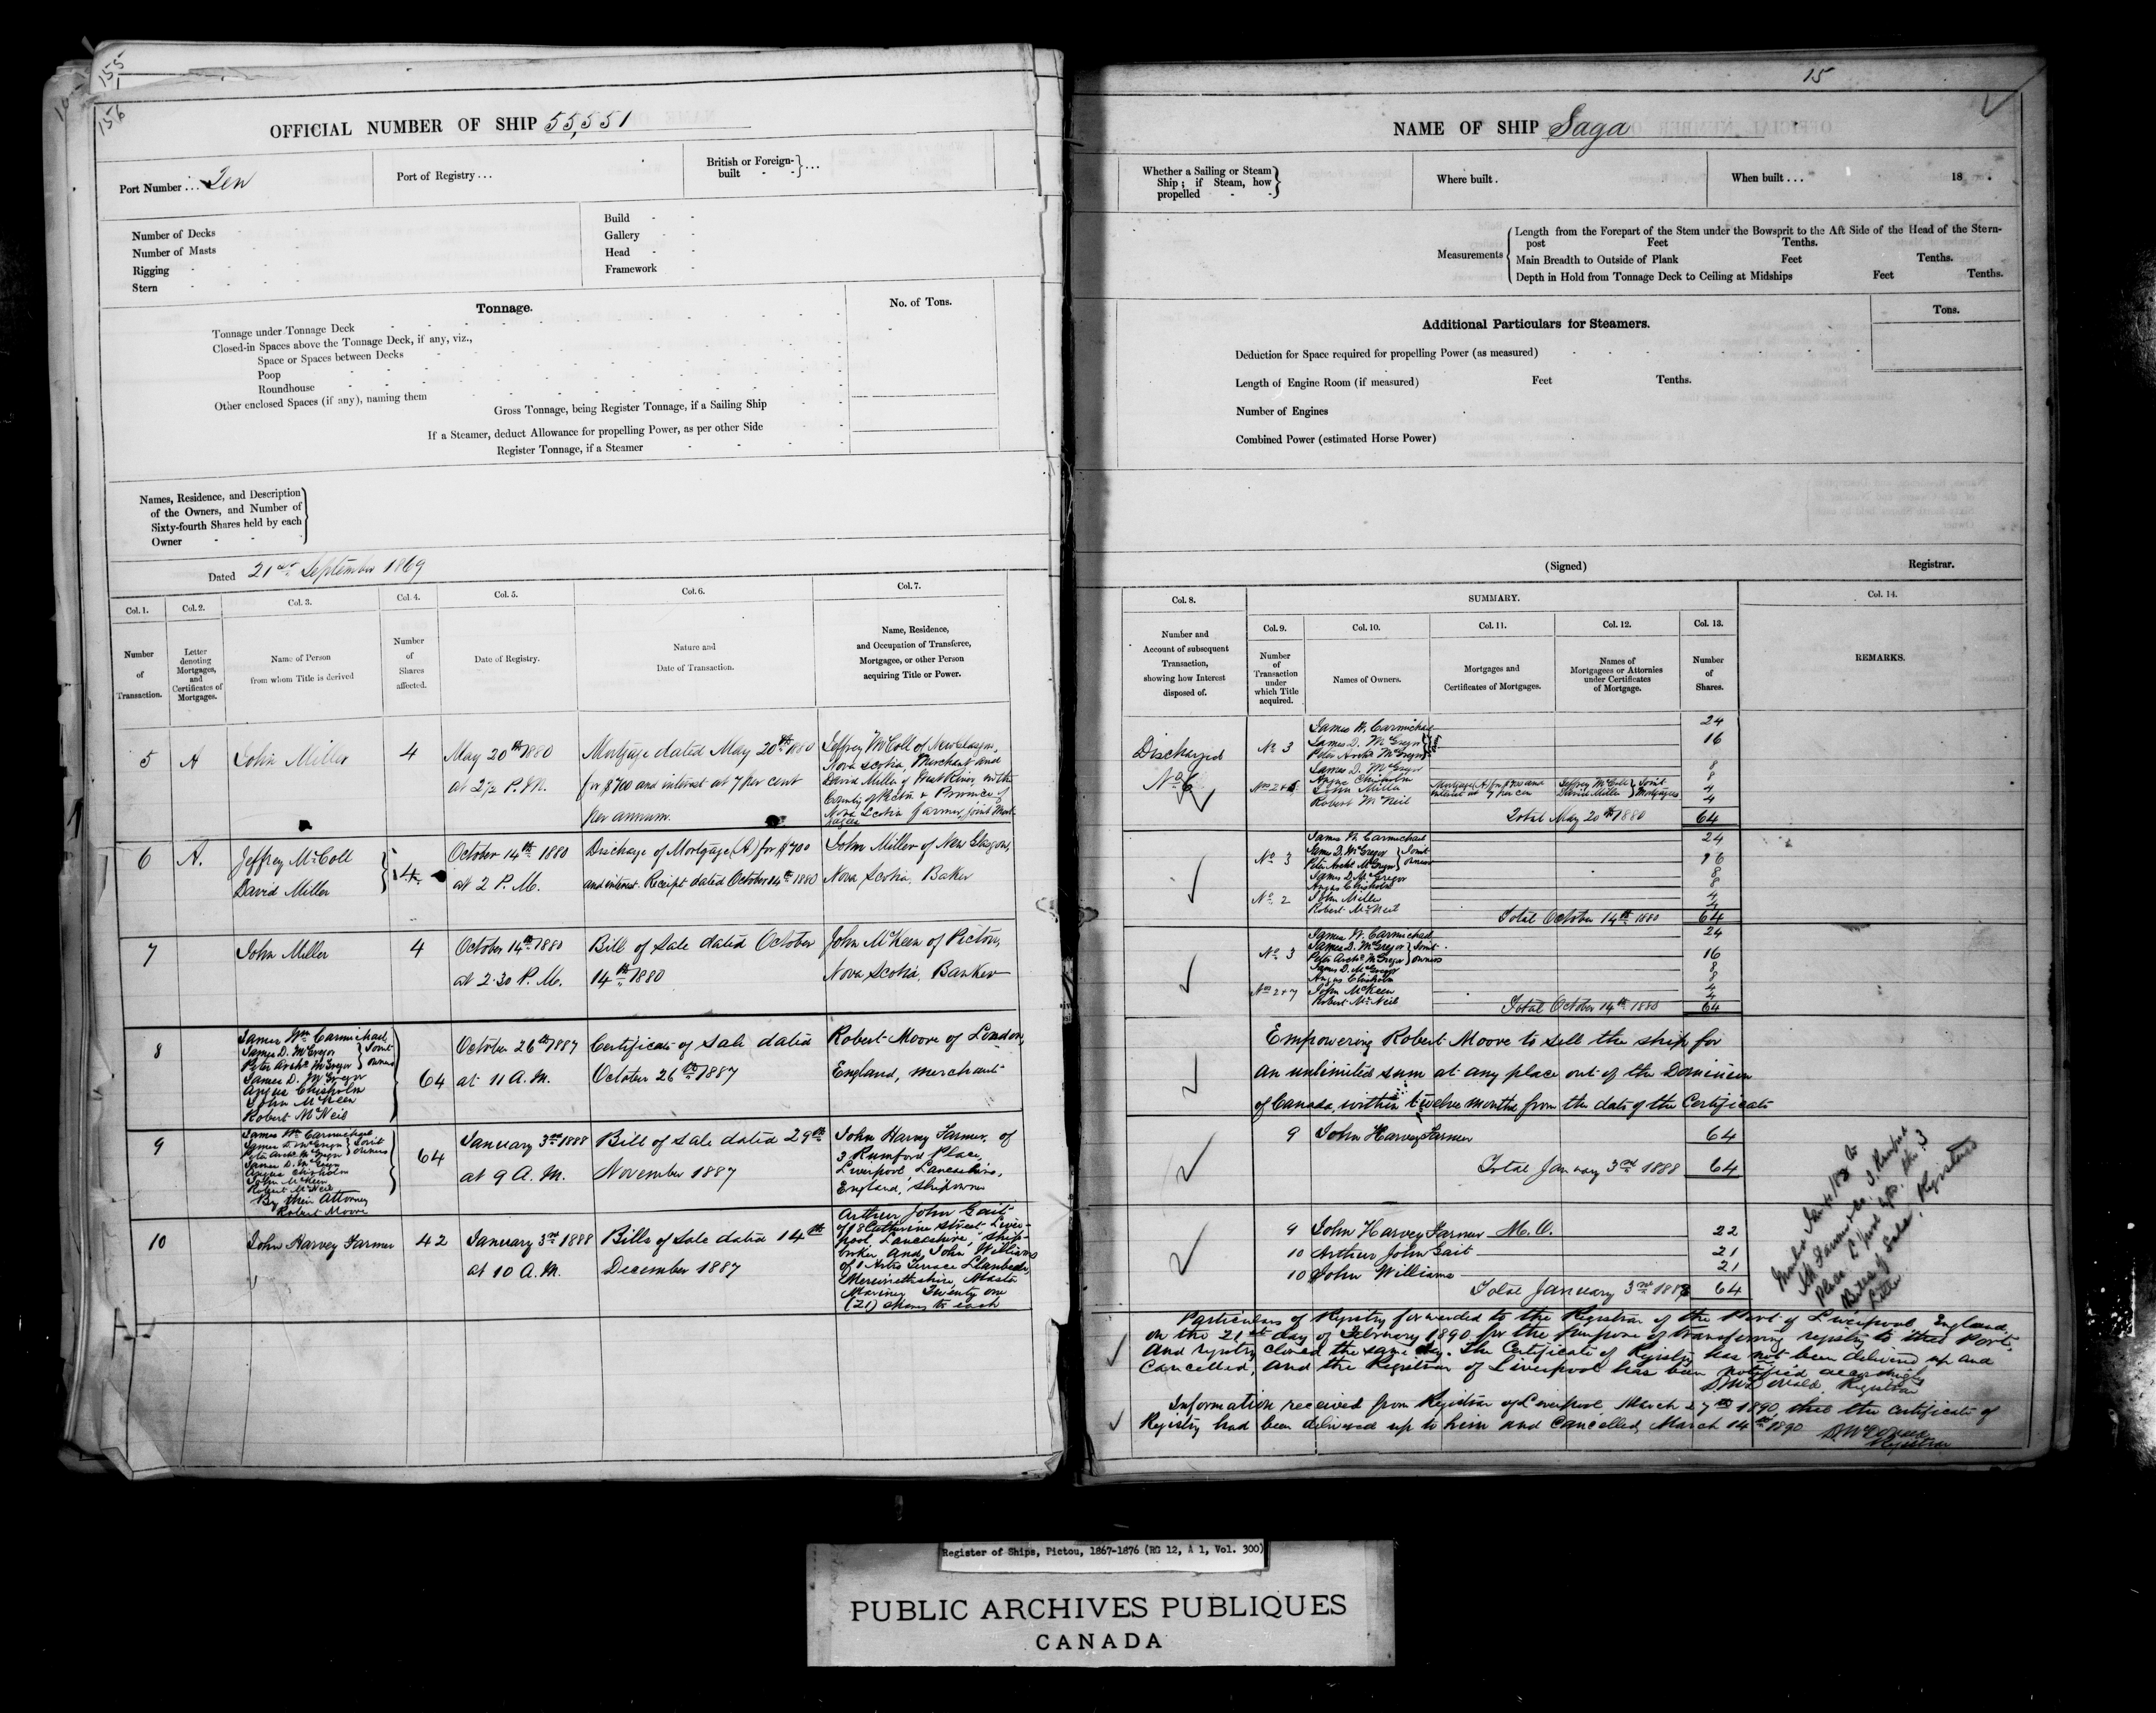 155
156
OFFICIAL NUMBER OF SHIP 55,551
Port Number ... Ten
Port of Registry ...
British or Foreign-built - - } ...
Number of Decks
Number of Masts
Rigging
Stern
Build
Gallery
Head
Framework
Tonnage.
No. of Tons.
Tonnage under Tonnage Deck
Closed-in Spaces above the Tonnage Deck, if any, viz.,
Space or Spaces between Decks
Poop
Roundhouse
Other enclosed Spaces (if any), naming them
Gross Tonnage, being Register Tonnage, if a Sailing Ship
If a Steamer, deduct Allowance for propelling Power, as per other Side
Register Tonnage, if a Steamer
Names, Residence, and Description
of the Owners, and Number of
Sixty-fourth Shares held by each
Owner
Dated 21st September 1869
Col. 1. Col. 2. Col. 3. Col. 4. Col. 5. Col. 6. Col. 7.
Number of Transaction.
Letter denoting Mortgages, and Certificates of Mortgages.
Name of Person from whom Title is derived
Number of Shares affected.
Date of Registry.
Nature and Date of Transaction.
Name, Residence, and Occupation of Transferee, Mortgagee, or other Person acquiring Title or Power.
5 A John Miller 4
May 20th 1880
at 2½ P.M.
Mortgage dated May 20th 1880
for $700 and interest at 7 per cent
per annum.
Jeffrey McColl of New Glasgow,
Nova Scotia, Merchant and
David Miller of West River, in the
County of Pictou & Province of
Nova Scotia farmer, joint Mortgagees
6 A. Jeffrey McColl
David Miller
4
October 14th 1880
at 2 P.M.
Discharge of Mortgage (A) for $700
and interest. Receipt dated October 14th 1880
John Miller of New Glasgow,
Nova Scotia, Baker
7 John Miller 4
October 14th 1880
at 2.30 P.M.
Bill of Sale dated October
14th 1880
John McKeen of Pictou,
Nova Scotia, Banker
8 James Wm Carmichael
James D. McGregor } Joint
Peter Archd McGregor } owners
James D. McGregor
Angus Chisholm
John McKeen
Robert McNeil
64
October 26th 1887
at 11 A.M.
Certificate of Sale dated
October 26th 1887
Robert Moore of London,
England, merchant
9 James Wm Carmichael
James D. McGregor } Joint
Peter Archd McGregor } owners
James D. McGregor
Angus Chisholm
John McKeen
Robert McNeil
By their Attorney
Robert Moore
64
January 3rd 1888
at 9 A.M.
Bill of Sale dated 29th
November 1887
John Harvey Farmer, of
3 Rumford Place,
Liverpool, Lancashire,
England, Shipowner
10 John Harvey Farmer 42
January 3rd 1888
at 10 A.M.
Bills of Sale dated 14th
December 1887
Arthur John Gait
of 18 Catherine Street Liver-
pool, Lancashire, Ship-
broker and John Williams
Terrace Llanbedr,
Merionethshire, Master
Mariner Twenty one
(21) shares to each
15
NAME OF SHIP Saga
Whether a Sailing or Steam
Ship; if Steam, how
propelled
Where built.
When built ... 18
Measurements
Length from the Forepart of the Stem under the Bowsprit to the Aft Side of the Head of the Stern-
post Feet Tenths.
Main Breadth to Outside of Plank Feet Tenths.
Depth in Hold from Tonnage Deck to Ceiling at Midships Feet Tenths.
Additional Particulars for Steamers.
Tons.
Deduction for Space required for propelling Power (as measured)
Length of Engine Room (if measured) Feet Tenths.
Number of Engines
Combined Power (estimated Horse Power)
(Signed) Registrar.
Col. 8. SUMMARY. Col. 14.
Col. 9. Col. 10. Col. 11. Col. 12. Col. 13.
Number and Account of subsequent Transaction, showing how Interest disposed of.
Number of Transaction under which Title acquired.
Names of Owners.
Mortgages and Certificates of Mortgages.
Names of Mortgagees or Attornies under Certificates of Mortgage.
Number of Shares.
REMARKS.
Discharged
No 6
No 3
James W. Carmichael 24
James D. McGregor
Peter Archd McGregor 16
James D. McGregor 8
Angus Chisholm 8
John Miller 4 Mortgage (A) for $700 and interest at 7 per cent Jeffrey McColl David Miller } Joint Mortgagees
Robert McNeil 4
Total May 20th 1880 64
No 3
James W. Carmichael 24
James D. McGregor } Joint
Peter Archd McGregor } owners 16
James D. McGregor 8
Angus Chisholm 8
No 2
John Miller 4
Robert McNeil 4
Total October 14th 1880 64
No 3
James W. Carmichael 24
James D. McGregor } Joint
Peter Archd McGregor } owners 16
James D. McGregor 8
Angus Chisholm 8
Nos 2 & 7
John McKeen 4
Robert McNeil 4
Total October 14th 1880 64
Empowering Robert Moore to sell the ship for
an unlimited sum at any place out of the Dominion
of Canada, within twelve months from the date of the Certificate
9 John Harvey Farmer 64
Total January 3rd 1888 64
9 John Harvey Farmer M.O. 22
10 Arthur John Gait 21
10 John Williams 21
Total January 3rd 1888 64
Particulars of Registry forwarded to the Registrar of the Port of Liverpool, England,
on the 21st day of February 1890 for the purpose of transferring registry to that Port,
and registry closed the same day. The Certificate of Registry has not been delivered up and
cancelled, and the Registrar of Liverpool has been notified accordingly
D McDonald, Registrar
Information received from Registrar of Liverpool March 27th 1890 that the Certificate of
Registry had been delivered up to him and cancelled, March 14th 1890
D McDonald
Registrar
Register of Ships, Pictou, 1867-1876 (RG 12, A 1, Vol. 300)
PUBLIC ARCHIVES PUBLIQUES
CANADA